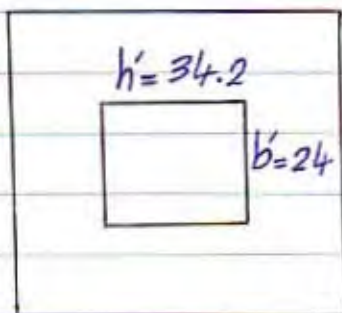 h'= 34.2
b'=24